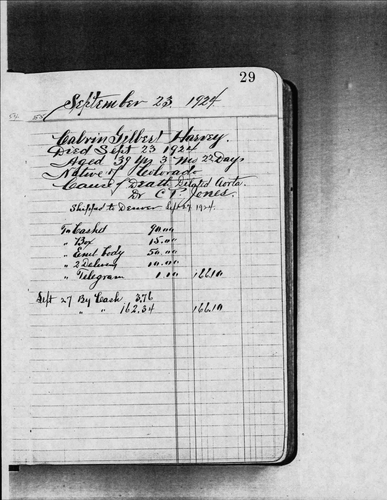 29
September 23, 1924
Calvin Gilbert Harvey.
Died Sept 23 1924
Aged 39 Yrs 3 Mo 22 Days
Native of Colorado
Cause of Death Dilated Aorta.
Dr C. P. Jones.
Shipped to Denver Sept 27 1924.
To Casket 90.00
" Box 15.00
" Eml Body 50.00
" 2 Delivery 10.00
" Telegram 1.10 166.10
Sept 27 By Cash 3.76
" " 162.34 166.10